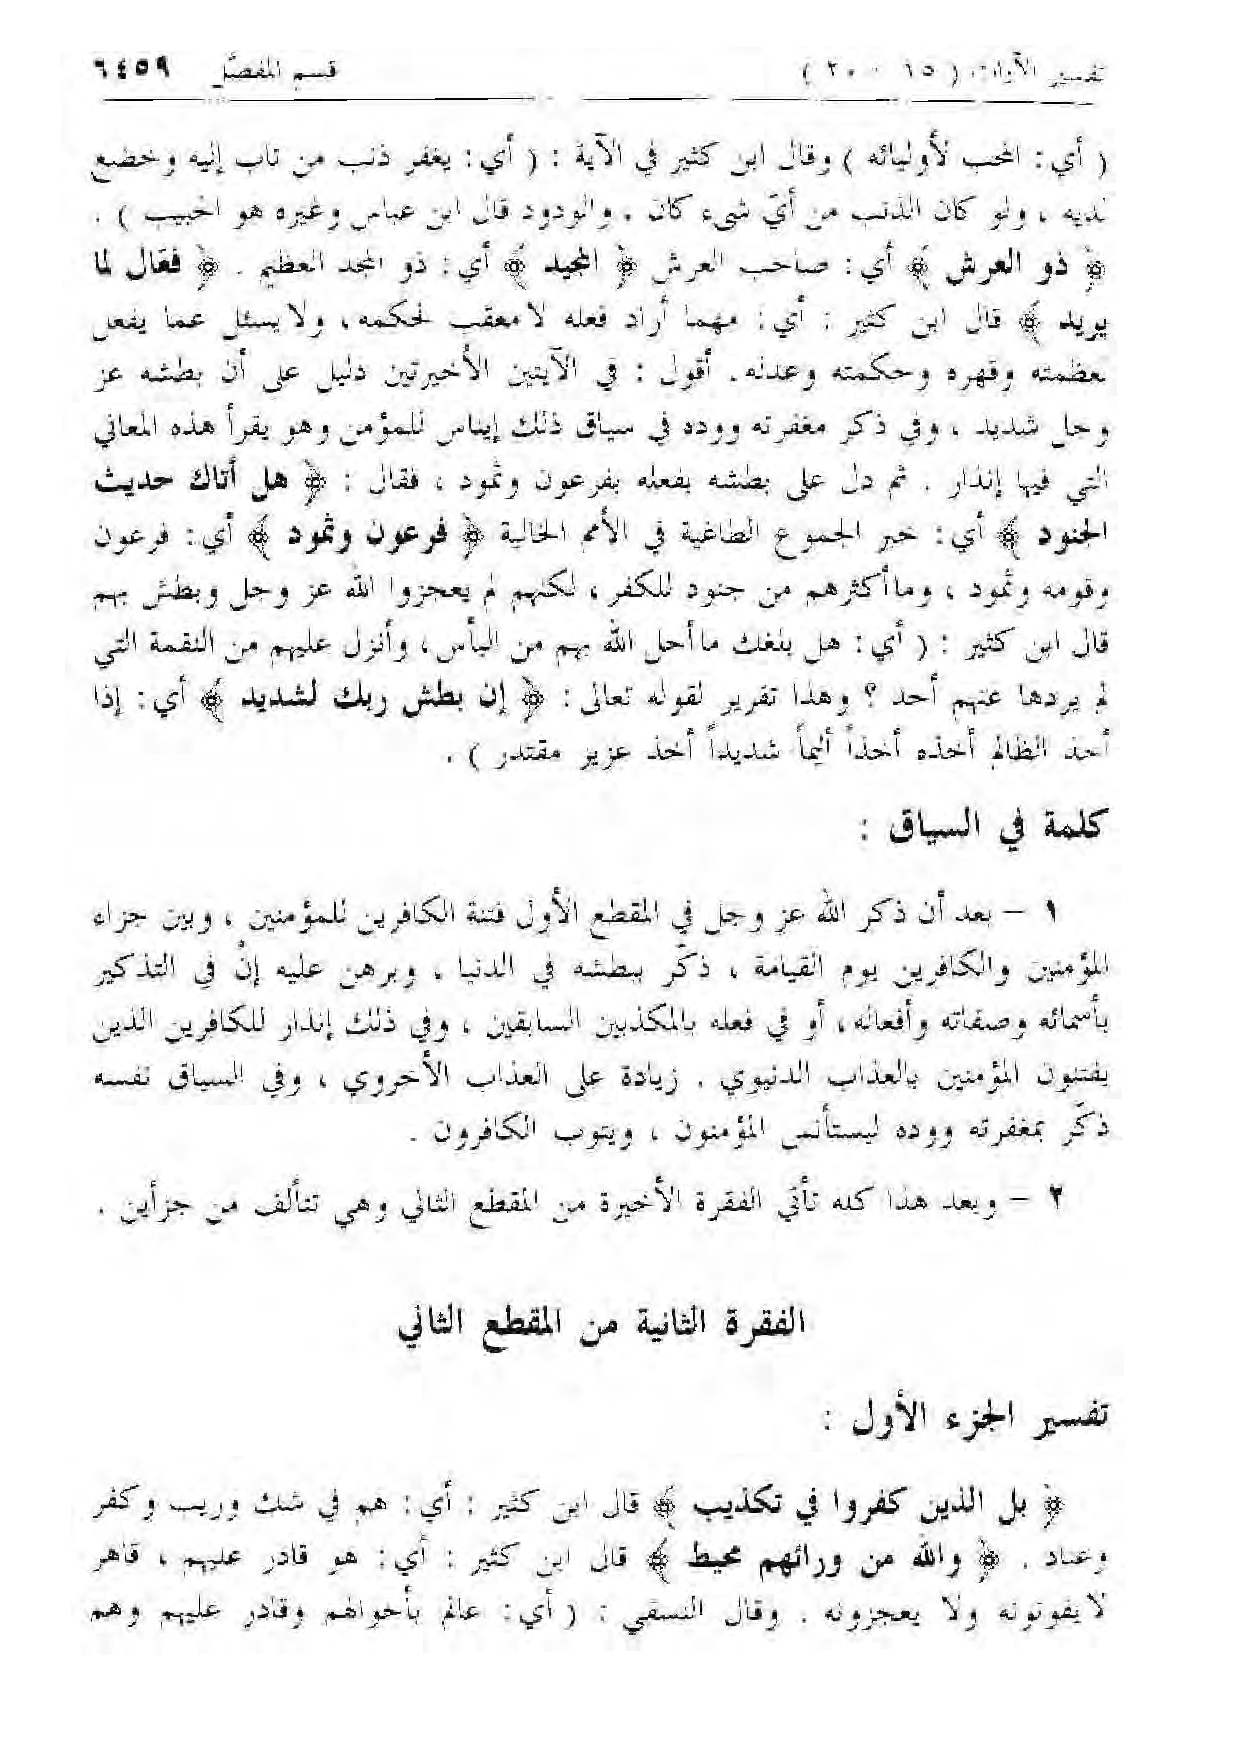 تفسير الآيات ( ١٥ - ٢٠ ) قسم المفصَّل ٦٤٥٩
( أي : المحب لأوليائه ) وقال ابن كثير في الآية : ( أي : يغفر ذنب من تاب إليه وخضع
لديه ، ولو كان الذنب من أيّ شيء كان . والودود قال ابن عباس وغيره هو الحبيب ) .
﴿ ذو العرش ﴾ أي : صاحب العرش ﴿ المجيد ﴾ أي : ذو المجد العظيم . ﴿ فعّال لما
يريد ﴾ قال ابن كثير : أي : مهما أراد فعله لا معقب لحكمه ، ولا يسئل عما يفعل
لعظمته وقهره وحكمته وعدله . أقول : في الآيتين الأخيرتين دليل على أن بطشه عز
وجل شديد ، وفي ذكر مغفرته ووده في سياق ذلك إيناس للمؤمن وهو يقرأ هذه المعاني
التي فيها إنذار . ثم دل على بطشه بفعله بفرعون وثمود ، فقال : ﴿ هل أتاك حديث
الجنود ﴾ أي : خبر الجموع الطاغية في الأمم الخالية ﴿ فرعون وثمود ﴾ أي : فرعون
وقومه وثمود ، وما أكثرهم من جنود للكفر ، لكنهم لم يعجزوا الله عز وجل وبطش بهم
قال ابن كثير : ( أي : هل بلغك ما أحل الله بهم من البأس ، وأنزل عليهم من النقمة التي
لم يردها عنهم أحد ؟ وهذا تقرير لقوله تعالى : ﴿ إن بطش ربك لشديد ﴾ أي : إذا
أخذ الظالم أخذه أخذاً أليماً شديداً أخذ عزيز مقتدر ) .
كلمة في السياق :
١ – بعد أن ذكر الله عز وجل في المقطع الأول فتنة الكافرين للمؤمنين ، وبين جزاء
المؤمنين والكافرين يوم القيامة ، ذكّر ببطشه في الدنيا ، وبرهن عليه إنْ في التذكير
بأسمائه وصفاته وأفعاله ، أو في فعله بالمكذبين السابقين ، وفي ذلك إنذار للكافرين الذين
يفتنون المؤمنين بالعذاب الدنيوي . زيادة على العذاب الأخروي ، وفي السياق نفسه
ذكّر بمغفرته ووده ليستأنس المؤمنون ، ويتوب الكافرون .
٢ – وبعد هذا كله تأتي الفقرة الأخيرة من المقطع الثاني وهي تتألف من جزأين .
الفقرة الثانية من المقطع الثاني
تفسير الجزء الأول :
﴿ بل الذين كفروا في تكذيب ﴾ قال ابن كثير : أي : هم في شك وريب وكفر
وعناد . ﴿ والله من ورائهم محيط ﴾ قال ابن كثير : أي : هو قادر عليهم ، قاهر
لا يفوتونه ولا يعجزونه . وقال النسفي : ( أي : عالم بأحوالهم وقادر عليهم وهم